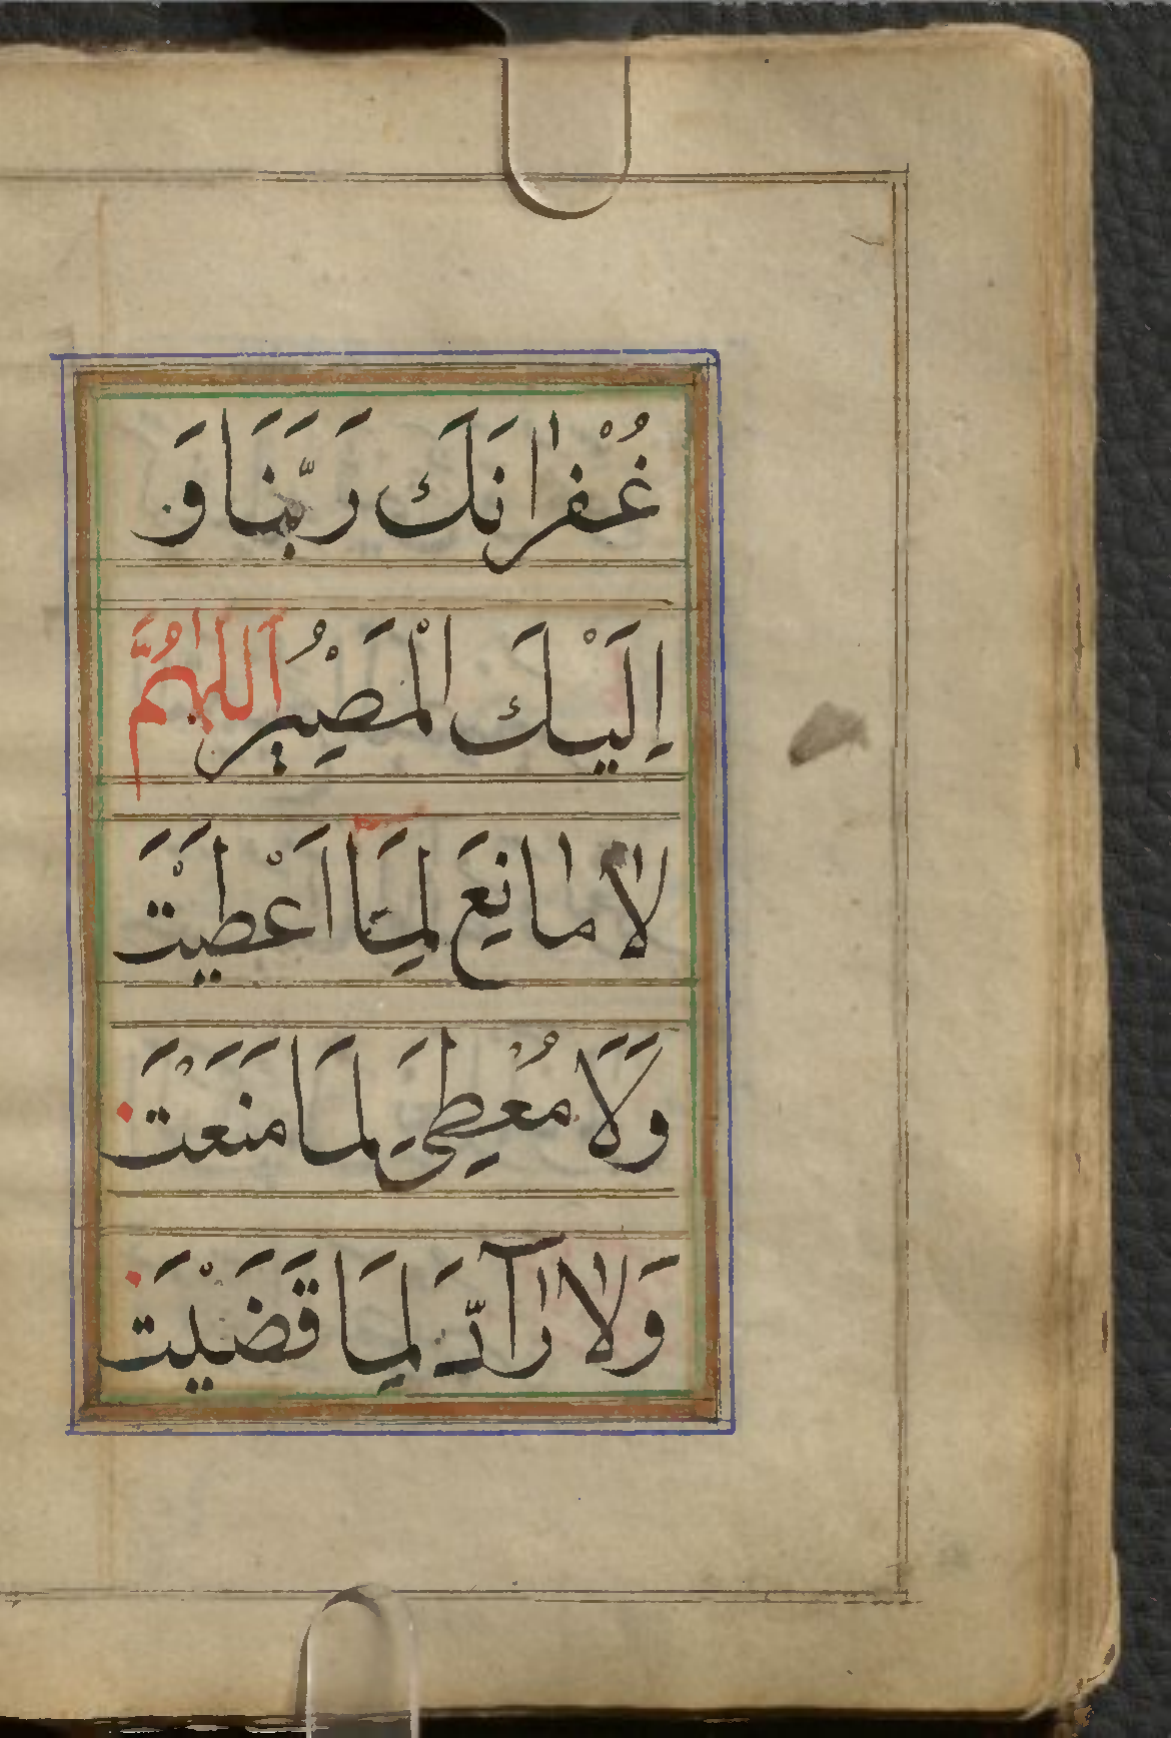 غُفْرٰانَكَ رَبَّنَا وَ
اِلَيْكَ الْمَصِيْرُ اَللّٰهُمَّ
لاٰ مٰانِعَ لِمَا اَعْطَيْتَ
وَلَا مُعْطِىَ لِمَا مَنَعْتَ
وَلاٰ رٰآدَّ لِمَا قَضَيْتَ